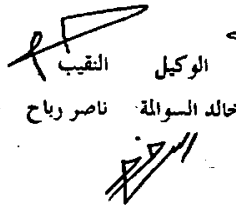 الوكيل النقيب
خالد السوالمة ناصر رباح